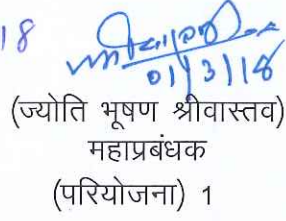 18
01/3/18
(ज्योति भूषण श्रीवास्तव)
महाप्रबंधक
(परियोजना) 1